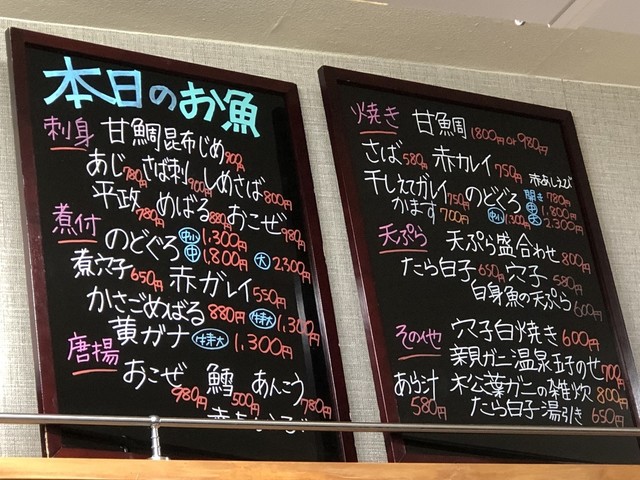 本日のお魚
刺身 甘鯛昆布じめ 900円
あじ 780円 さば刺 900円 しめさば 800円
平政 780円 めばる 880円 おこぜ 980円
煮付 のどぐろ 中小 1,300円
中 1,800円 大 2,300円
煮穴子 650円 赤ガレイ 550円
かさごめばる 880円 特大 1,300円
黄ガナ 特大 1,300円
唐揚 おこぜ 980円 鱈 500円 あんこう 780円
焼き 甘魚周 1800円 or 980円
さば 580円 赤カレイ 750円 赤あしえび
干しえてガレイ 750円 のどぐろ 開き 780円
中 1,800円
かます 700円 中小 1,300円 大 2,300円
天ぷら 天ぷら盛合わせ 800円
たら白子 650円 穴子 580円
白身魚の天ぷら 600円
その他 穴子白焼き 600円
親ガニ温泉玉子のせ 700円
あら汁 580円 松葉ガニの雑炊 800円
たら白子湯引き 650円